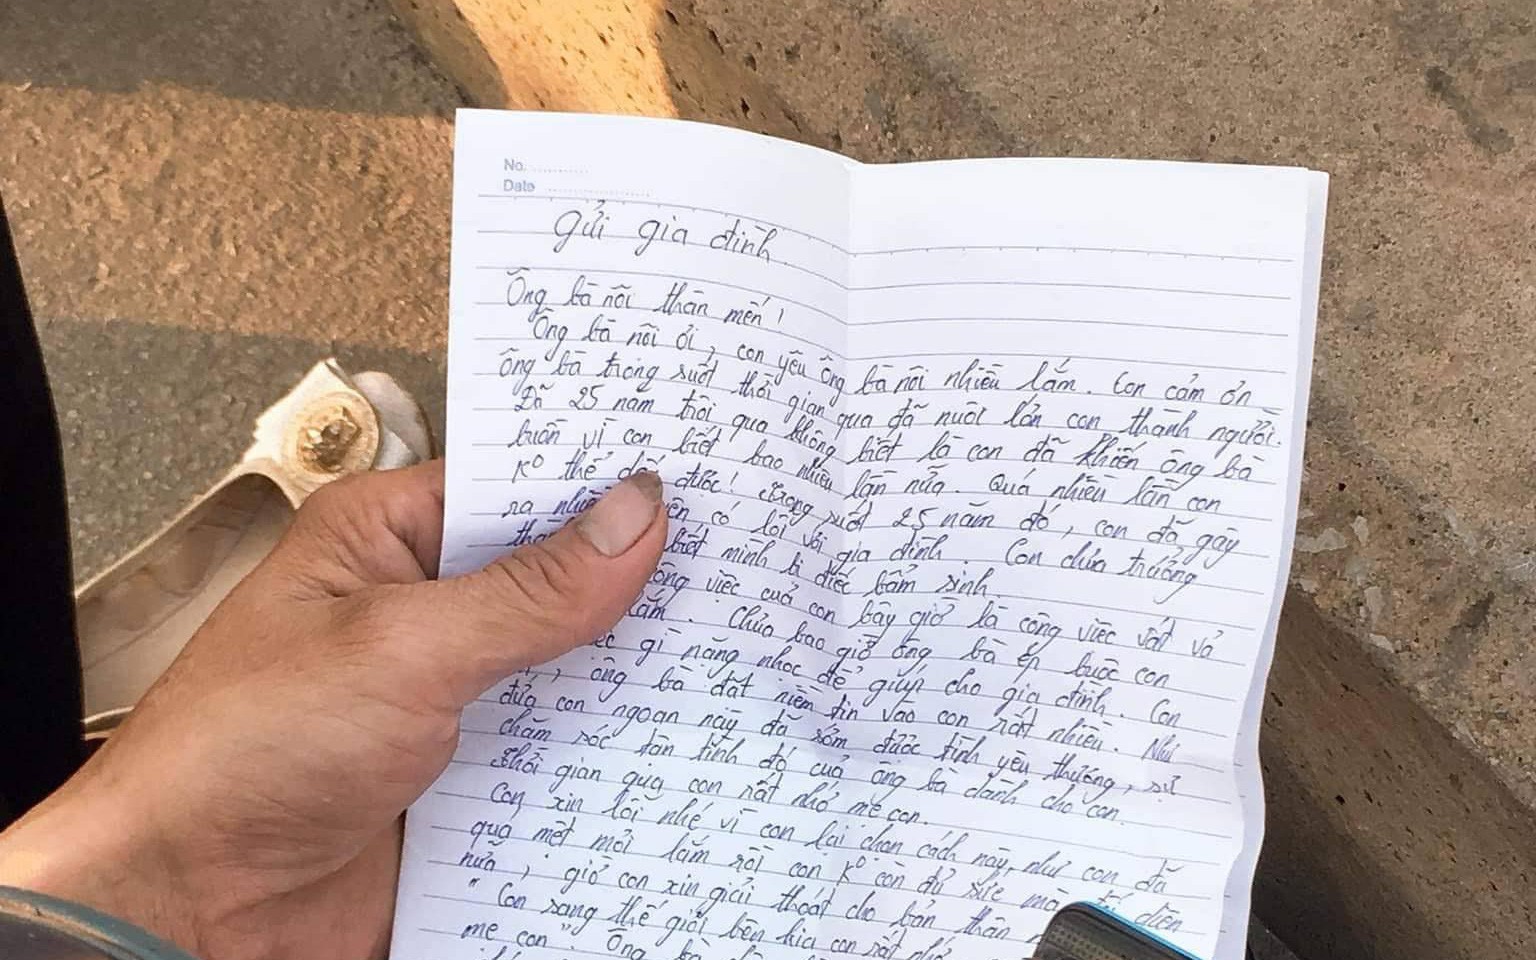 No.
Date
Gửi gia đình
Ông bà nội thân mến!
Ông bà nội ơi, con yêu ông bà nội nhiều lắm. Con cảm ơn
ông bà trong suốt thời gian qua đã nuôi lớn con thành người.
Đã 25 năm trôi qua không biết là con đã khiến ông bà
buồn vì con biết bao nhiêu lần nữa. Quá nhiều lần con
K° thể đếm được! Trong suốt 25 năm đó, con đã gây
ra có lỗi với gia đình. Con chưa trưởng
biết mình bị điếc bẩm sinh.
công việc của con bây giờ là công việc vất vả
lắm. Chưa bao giờ ông bà ép buộc con
gì nặng nhọc để giúp cho gia đình. Con
, ông bà đặt niềm tin vào con rất nhiều. Như
đứa con ngoan này đã sớm được tình yêu thương, sự
chăm sóc tận tình đó của ông bà dành cho con.
Thời gian qua con rất nhớ mẹ con.
Con xin lỗi nhé vì con lại chọn cách này, như con đã
quá mệt mỏi lắm rồi con K° còn đủ sức mà
nữa, giờ con xin giải thoát cho bản thân
"Con sang thế giới bên kia con rất nhớ
mẹ con". Ông